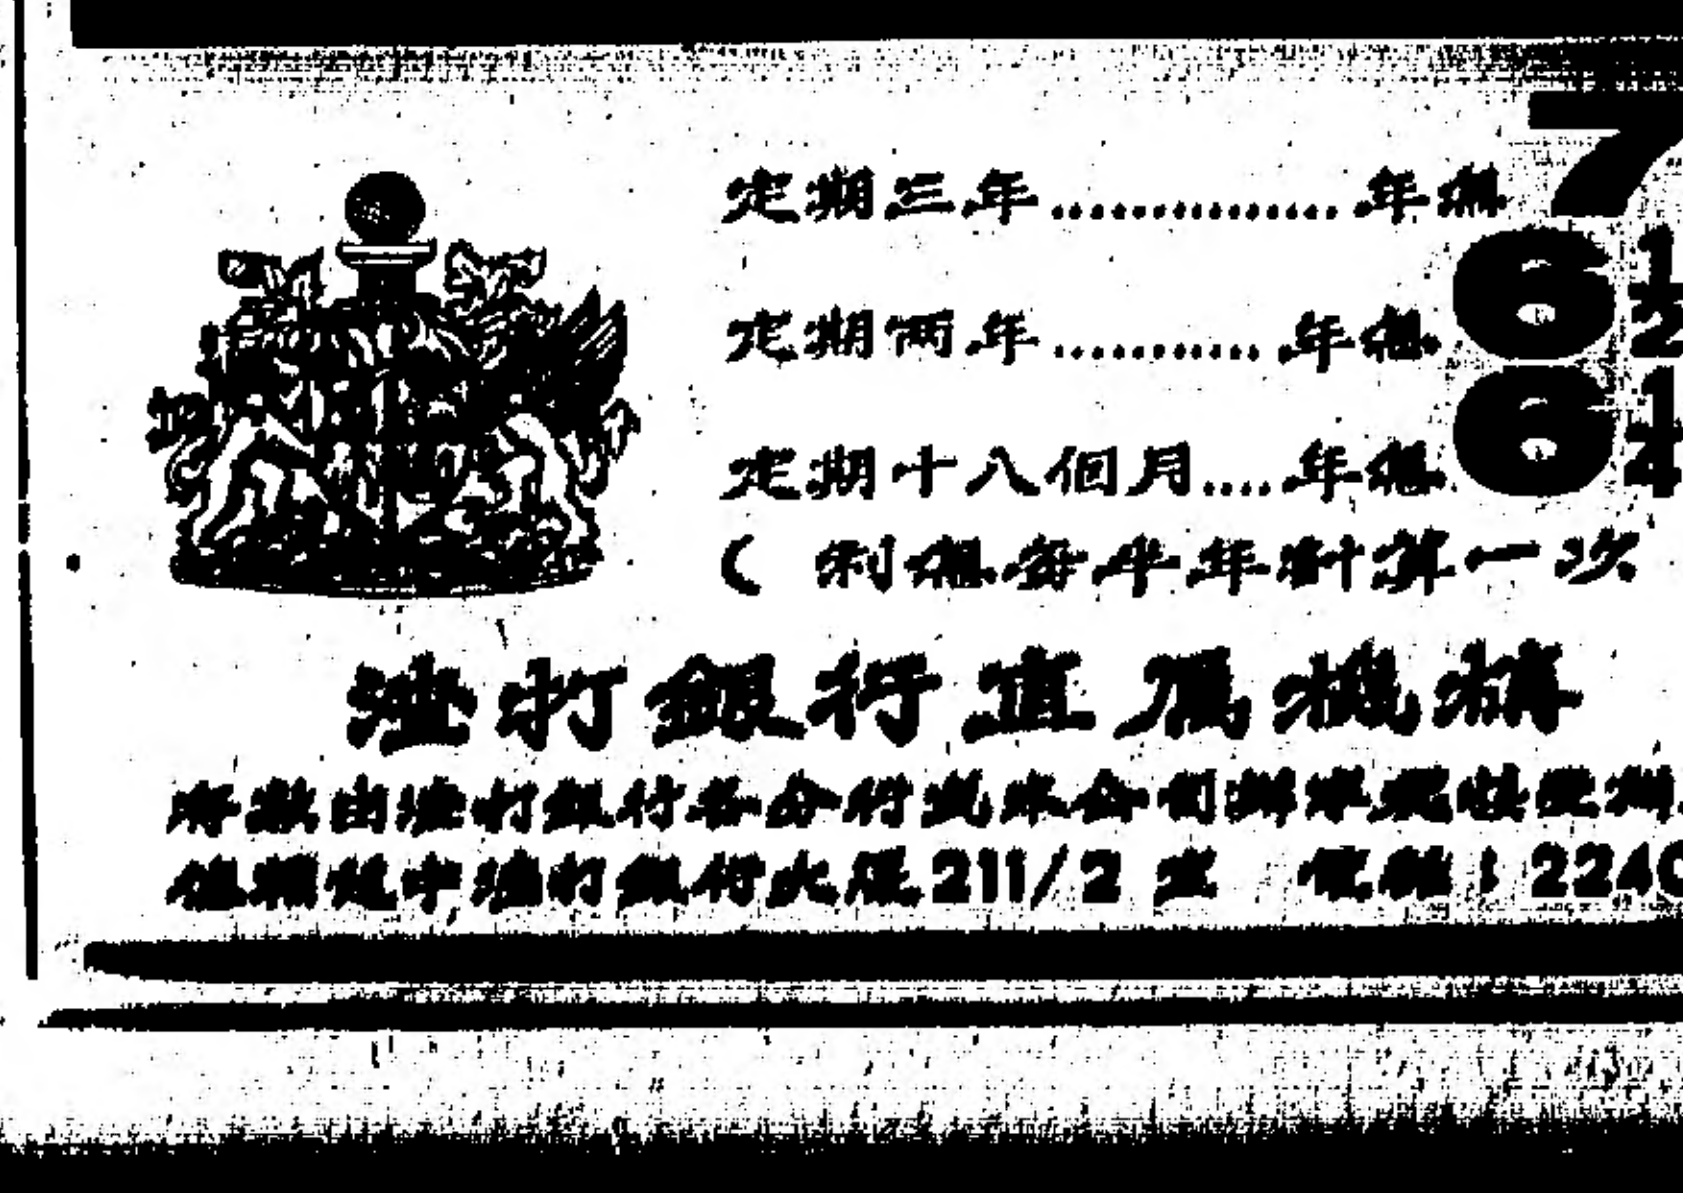 定期三年...............年息7
定期兩年...........年息6½
定期十八個月....年息6¼
( 利息每半年計算一次
渣打銀行直屬機構
存款由渣打銀行各分行或本公司辦
中渣打銀行大厦211/2室 電話:2240